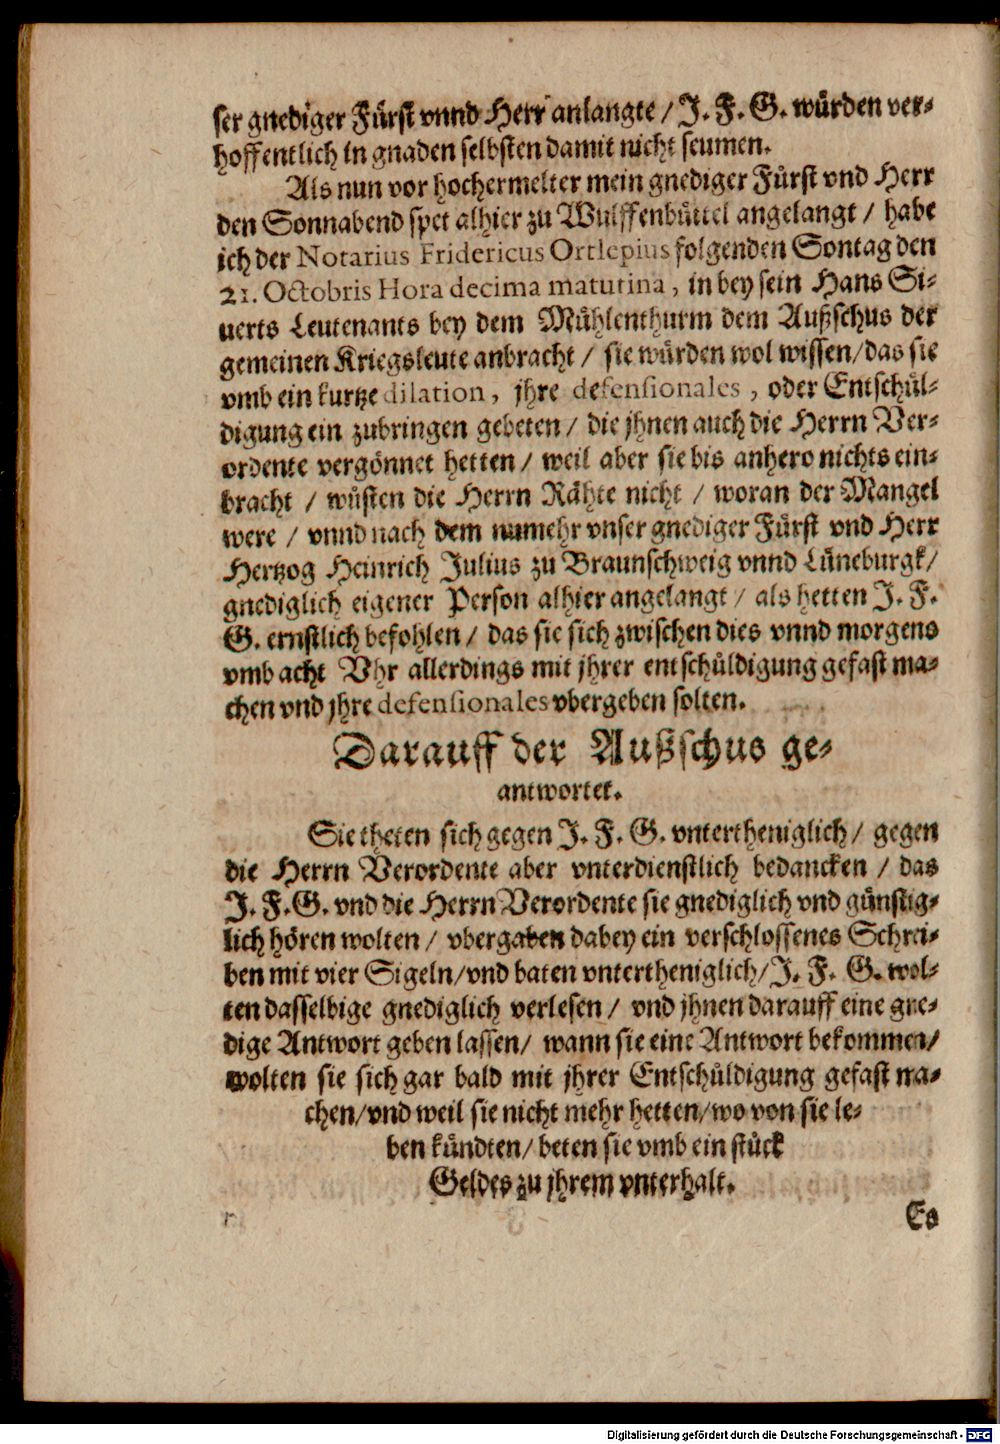 ser gnediger Fürst vnnd Herr anlangte / J. F. G. würden ver-
hoffentlich in gnaden selbsten damit nicht seumen.
Als nun vor hochermelter mein gnediger Fürst vnd Herr
den Sonnabend spet alhier zu Wulffenbüttel angelangt / habe
ich der Notarius Fridericus Ortlepius folgenden Sontag den
21. Octobris Hora decima matutina, in bey sein Hans Si-
uerts Leutenants bey dem Mühlenthurm dem Außschus der
gemeinen Kriegsleute anbracht / sie würden wol wissen/das sie
vmb ein kurtze dilation, jhre defensionales, oder Entschül-
digung ein zubringen gebeten / die jhnen auch die Herrn Ver-
ordente vergönnet hetten / weil aber sie bis anhero nichts ein-
bracht / wüsten die Herrn Rähte nicht / woran der Mangel
were / vnnd nach dem numehr vnser gnediger Fürst vnd Herr
Hertzog Heinrich Julius zu Braunschweig vnnd Lüneburgk/
gnediglich eigener Person alhier angelangt / als hetten J. F.
G. ernstlich befohlen / das sie sich zwischen dies vnnd morgens
vmb acht Vhr allerdings mit jhrer entschüldigung gefast ma-
chen vnd jhre defensionales vbergeben solten.
Darauff der Außschus ge-
antwortet.
Sie theten sich gegen J. F. G. vntertheniglich / gegen
die Herrn Verordente aber vnterdienstlich bedancken / das
J. F. G. vnd die Herrn Verordente sie gnediglich vnd günstig-
lich hören wolten / vbergaben dabey ein verschlossenes Schrei-
ben mit vier Sigeln/vnd baten vntertheniglich/J. F. G. wol-
ten dasselbige gnediglich verlesen / vnd jhnen darauff eine gne-
dige Antwort geben lassen/ wann sie eine Antwort bekommen/
wolten sie sich gar bald mit jhrer Entschüldigung gefast ma-
chen/vnd weil sie nicht mehr hetten/wo von sie le-
ben kündten/beten sie vmb ein stück
Geldes zu jhrem vnterhalt.
Es
Digitalisierung gefördert durch die Deutsche Forschungsgemeinschaft - DFG